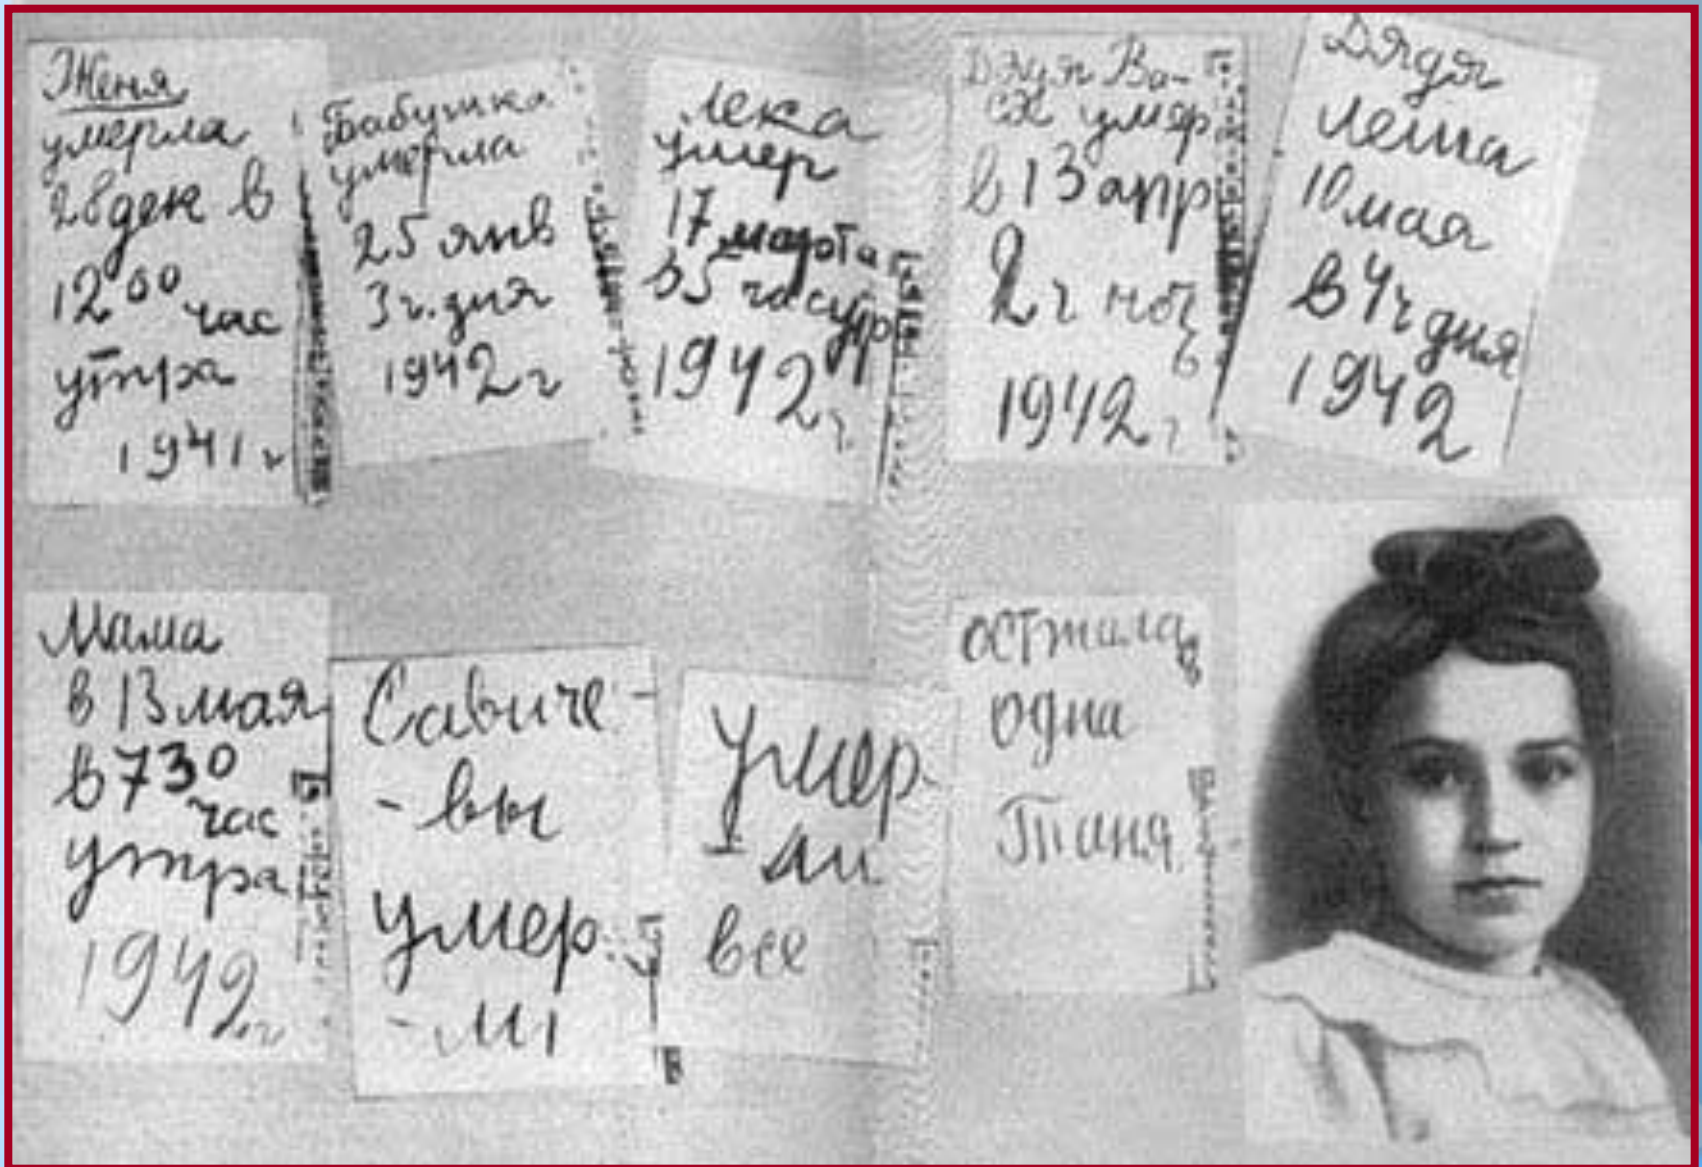 Женя
умерла
28 дек в
12 00 час
утра
1941 г
Бабушка
умерла
25 янв
3 ч. дня
1942 г
Лека
умер
17 марта
в 5 час утр
1942 г
Дядя Ва-
ся умер
в 13 апр
2 ч ноч
1942 г
Дядя
Леша
10 мая
в 4 ч дня
1942
Мама
в 13 мая
в 7 30
час
утра
1942 г
Савиче-
-вы
умер
-ли
Умер-
-ли
все
осталась
одна
Таня